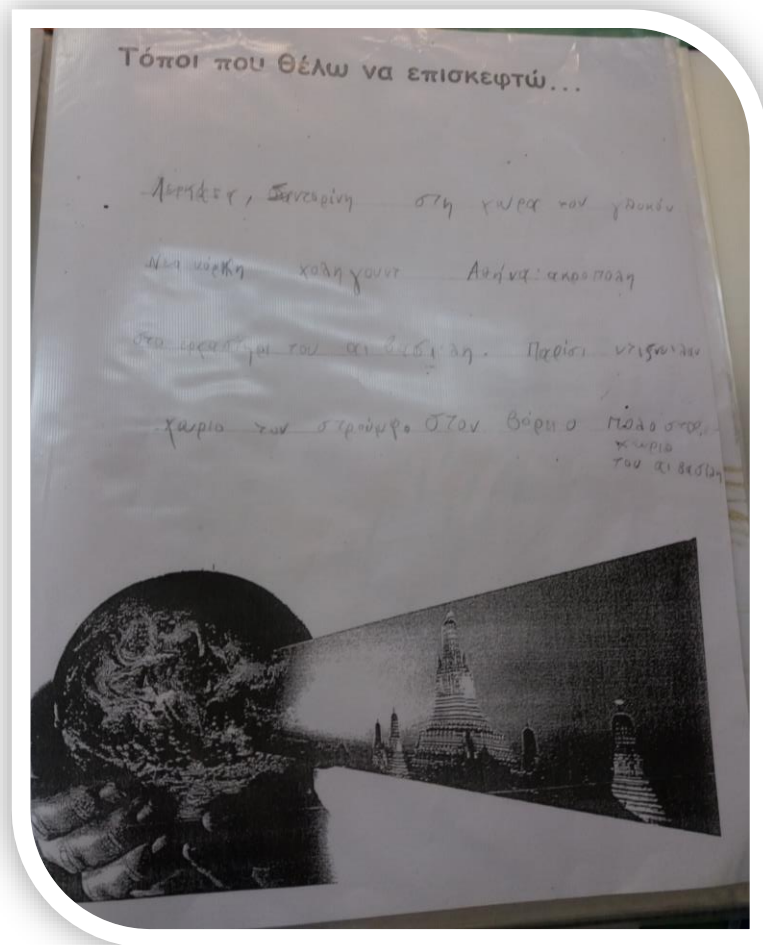 Τόποι που θέλω να επισκεφτώ...
Σαντορίνη στη χώρα του γλυκόυ
Νεα υόρκη χολη γουντ Αθήνα: ακροπολη
στο εργαστηρι του αι βασιλη. Παρίσι ντιζνυλαν
χωριο τον στρούμφο στον βόριο πολο στο
χωριο
του αι βασιλη